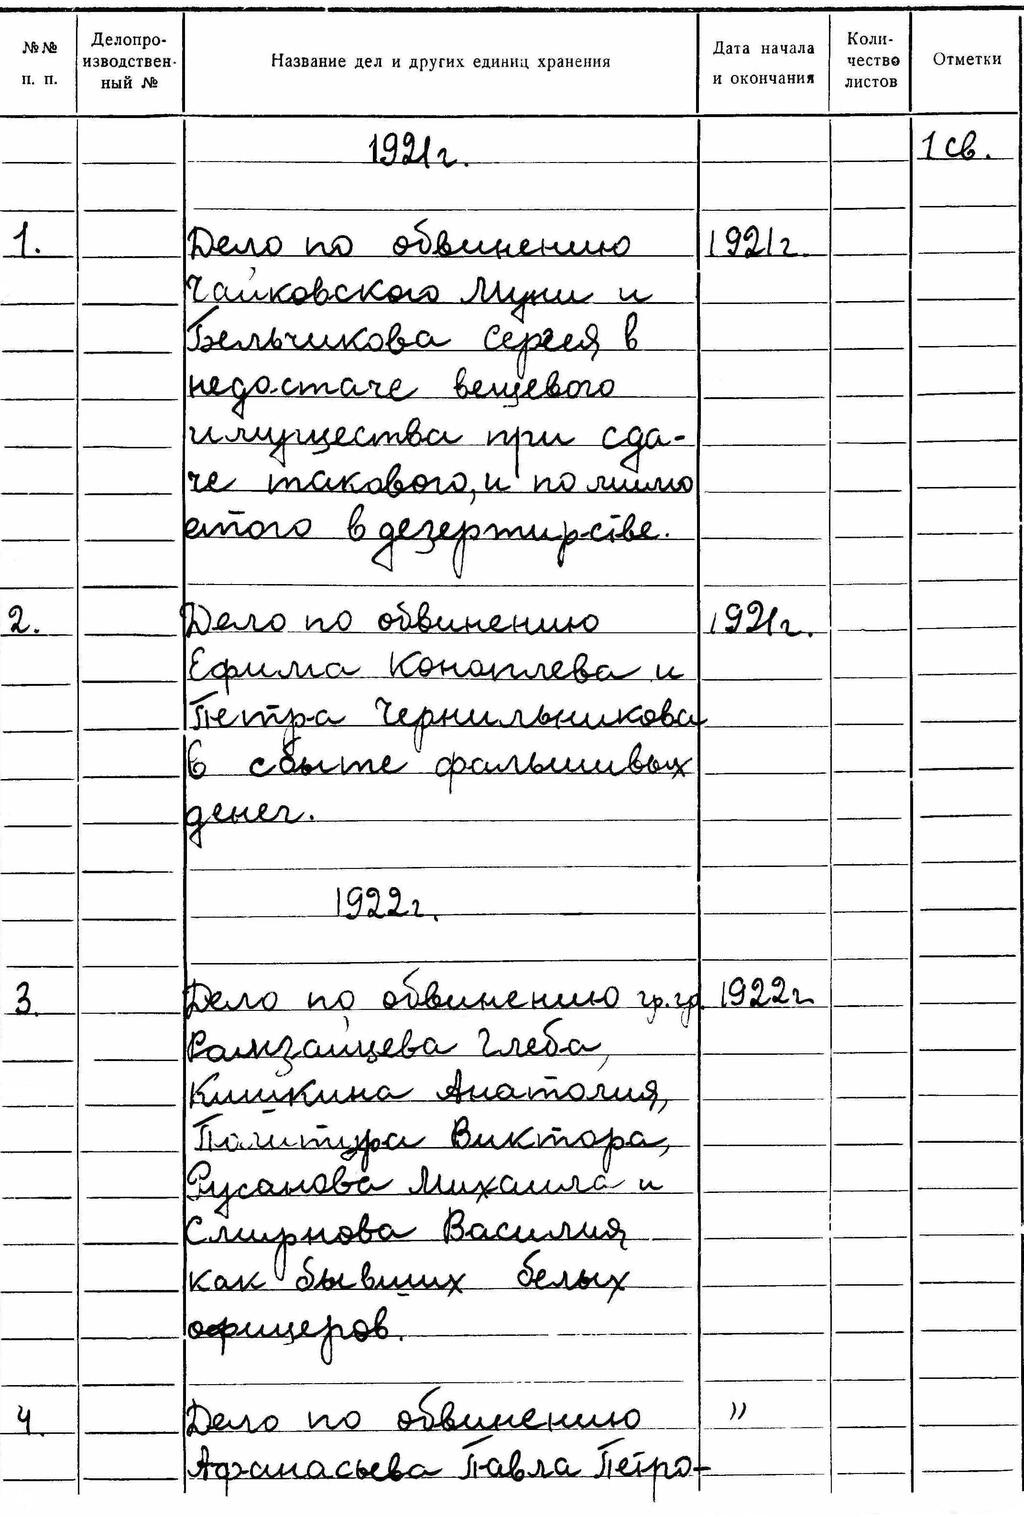 №№ п. п.
Делопро-
изводствен-
ный №
Название дел и других единиц хранения
Дата начала
и окончания
Коли-
чество
листов
Отметки
1921г. 1 св.
1. Дело по обвинению 1921г.
Чайковского Муни и
Бельчикова Сергея в
недостаче вещевого
имущества при сда-
че такового, и помимо
этого в дезертирстве.
2. Дело по обвинению 1921г.
Ефима Коноплева и
Петра Чернильникова
в сбыте фальшивых
денег.
1922г.
3. Дело по обвинению гр.гр. 1922г
Рамзайцева Глеба,
Кишкина Анатолия,
Виктора,
Русанова Михаила и
Смирнова Василия
как бывших белых
офицеров.
4. Дело по обвинению "
Афанасьева Павла Петро-